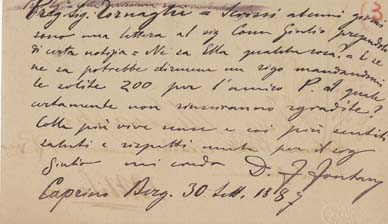 Preg. Sig. Tornaghi = Scrissi alcuni giorni
sono una lettera al sig Comm Giulio pregandolo
di certa notizia = Ne sa Ella qualche cosa? = E se
ne sa potrebbe dirmene un rigo mandandomi
le solite 200 per l'amico P. al quale
certamente non riusciranno sgradite?
Colle più vive scuse e coi più sentiti
saluti e rispetti anche per il sig
Giulio mi creda D. J Fontana
Caprino Berg. 30 Sett. 1887